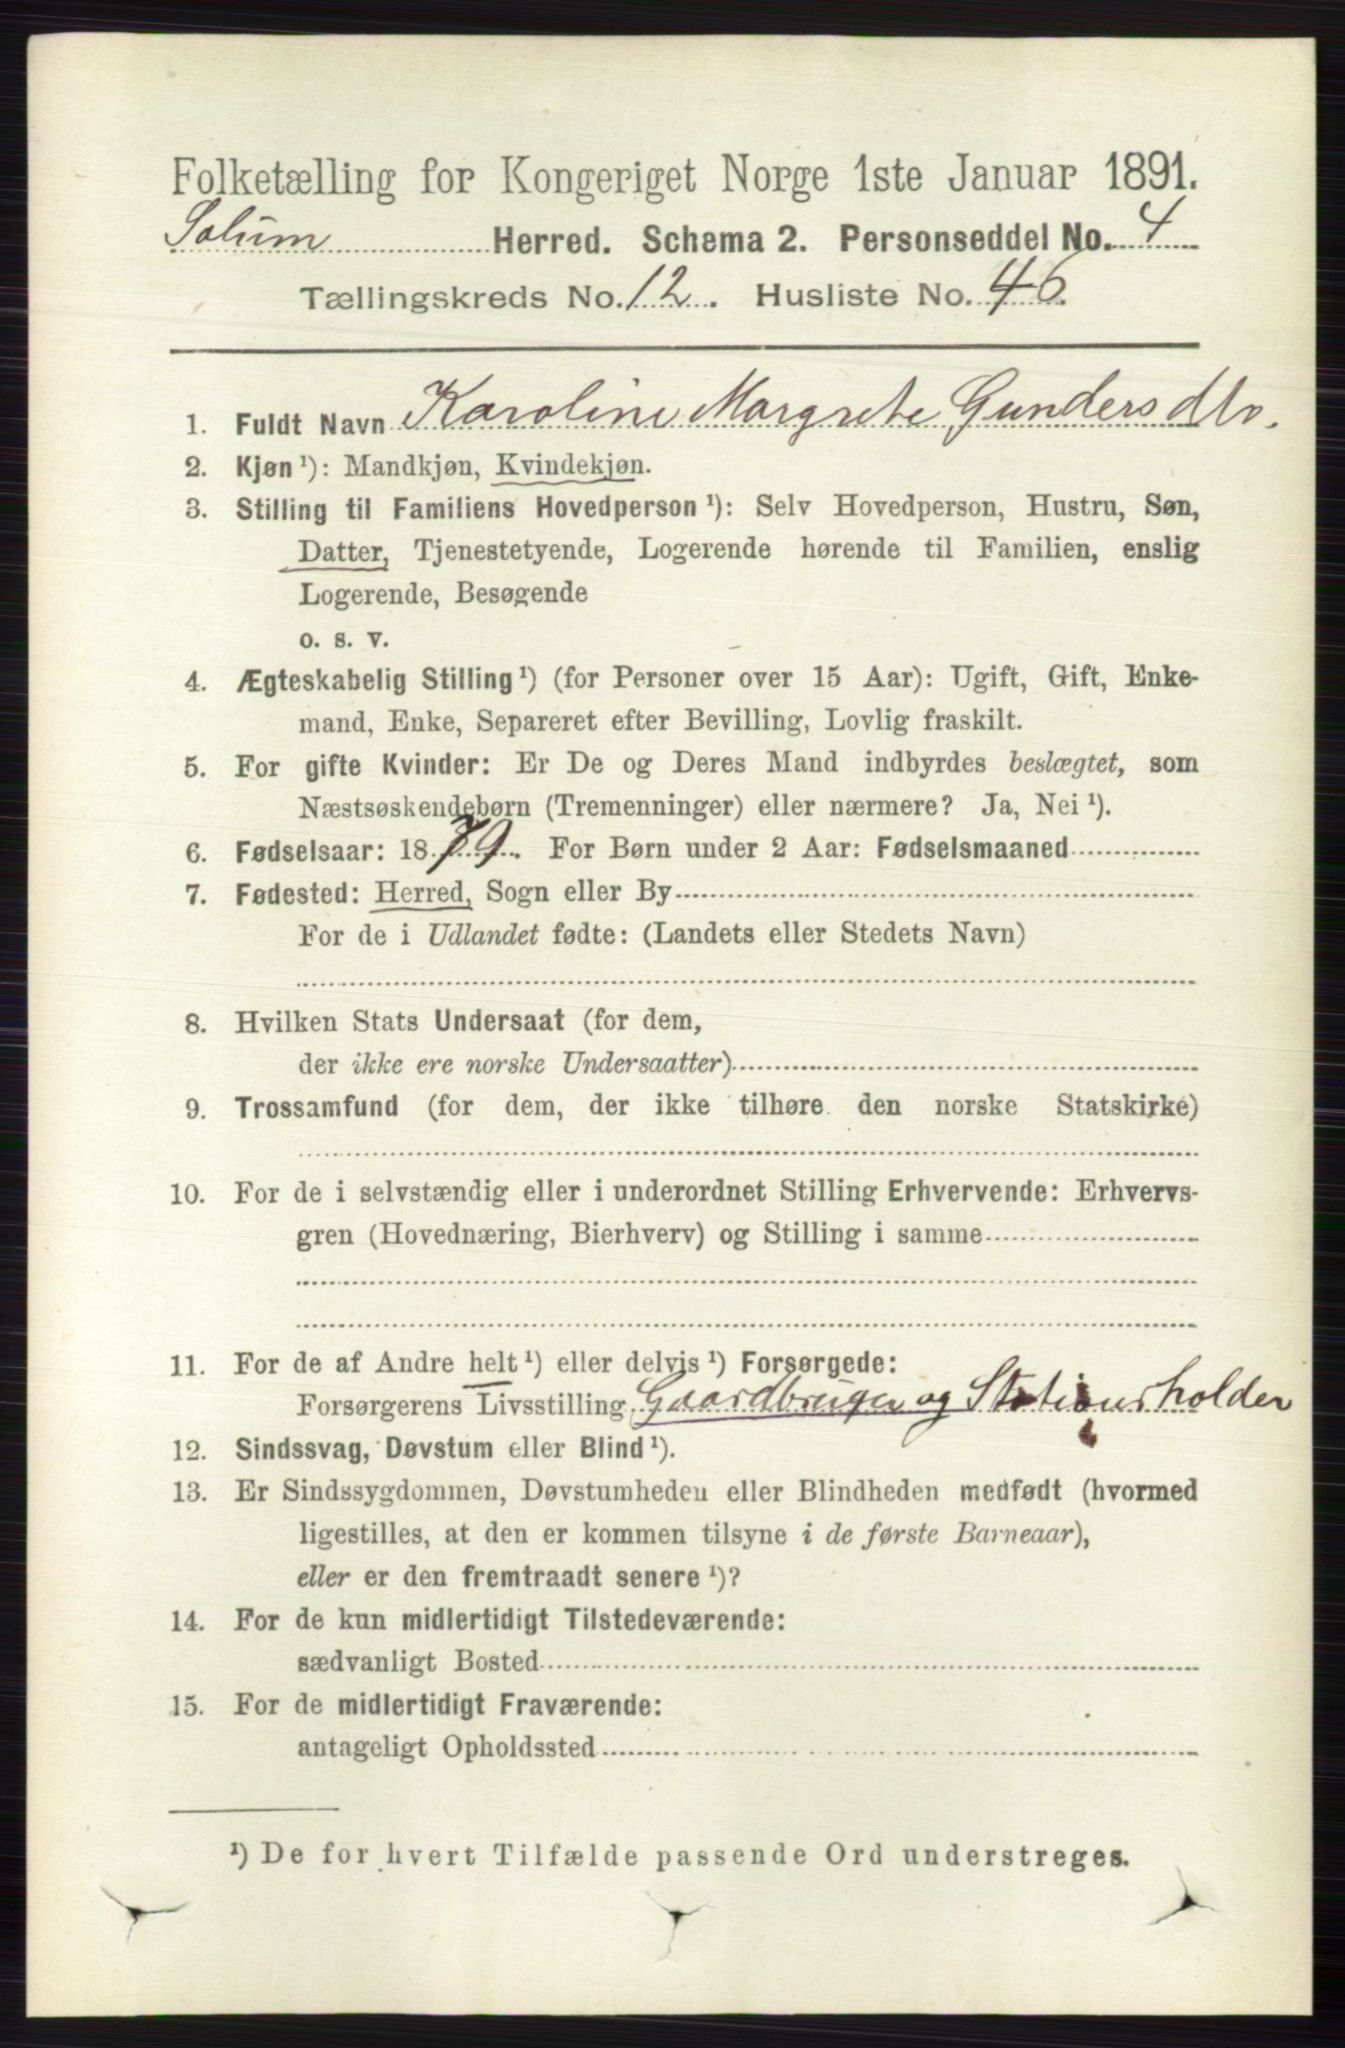 Folketælling for Kongeriget Norge 1ste Januar 1891.
Solum Herred. Schema 2. Personseddel No. 4
Tællingskreds No. 12. Husliste No. 46.
1. Fuldt Navn Karoline Margrete Gundersdtr.
2. Kjøn ¹): Mandkjøn, Kvindekjøn.
3. Stilling til Familiens Hovedperson ¹): Selv Hovedperson, Hustru, Søn,
Datter, Tjenestetyende, Logerende hørende til Familien, enslig
Logerende, Besøgende
o. s. v.
4. Ægteskabelig Stilling ¹) (for Personer over 15 Aar): Ugift, Gift, Enke-
mand, Enke, Separeret efter Bevilling, Lovlig fraskilt.
5. For gifte Kvinder: Er De og Deres Mand indbyrdes beslægtet, som
Næstsøskendebørn (Tremenninger) eller nærmere? Ja, Nei ¹).
6. Fødselsaar: 1879. For Børn under 2 Aar: Fødselsmaaned
7. Fødested: Herred, Sogn eller By
For de i Udlandet fødte: (Landets eller Stedets Navn)
8. Hvilken Stats Undersaat (for dem,
der ikke ere norske Undersaatter)
9. Trossamfund (for dem, der ikke tilhøre den norske Statskirke)
10. For de i selvstændig eller i underordnet Stilling Erhvervende: Erhvervs-
gren (Hovednæring, Bierhverv) og Stilling i samme
11. For de af Andre helt ¹) eller delvis ¹) Forsørgede:
Forsørgerens Livsstilling Gaardbruger og Stationsholder
12. Sindssvag, Døvstum eller Blind ¹).
13. Er Sindssygdommen, Døvstumheden eller Blindheden medfødt (hvormed
ligestilles, at den er kommen tilsyne i de første Barneaar),
eller er den fremtraadt senere ¹)?
14. For de kun midlertidigt Tilstedeværende:
sædvanligt Bosted
15. For de midlertidigt Fraværende:
antageligt Opholdssted
¹) De for hvert Tilfælde passende Ord understreges.